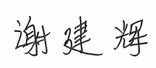 谢建辉